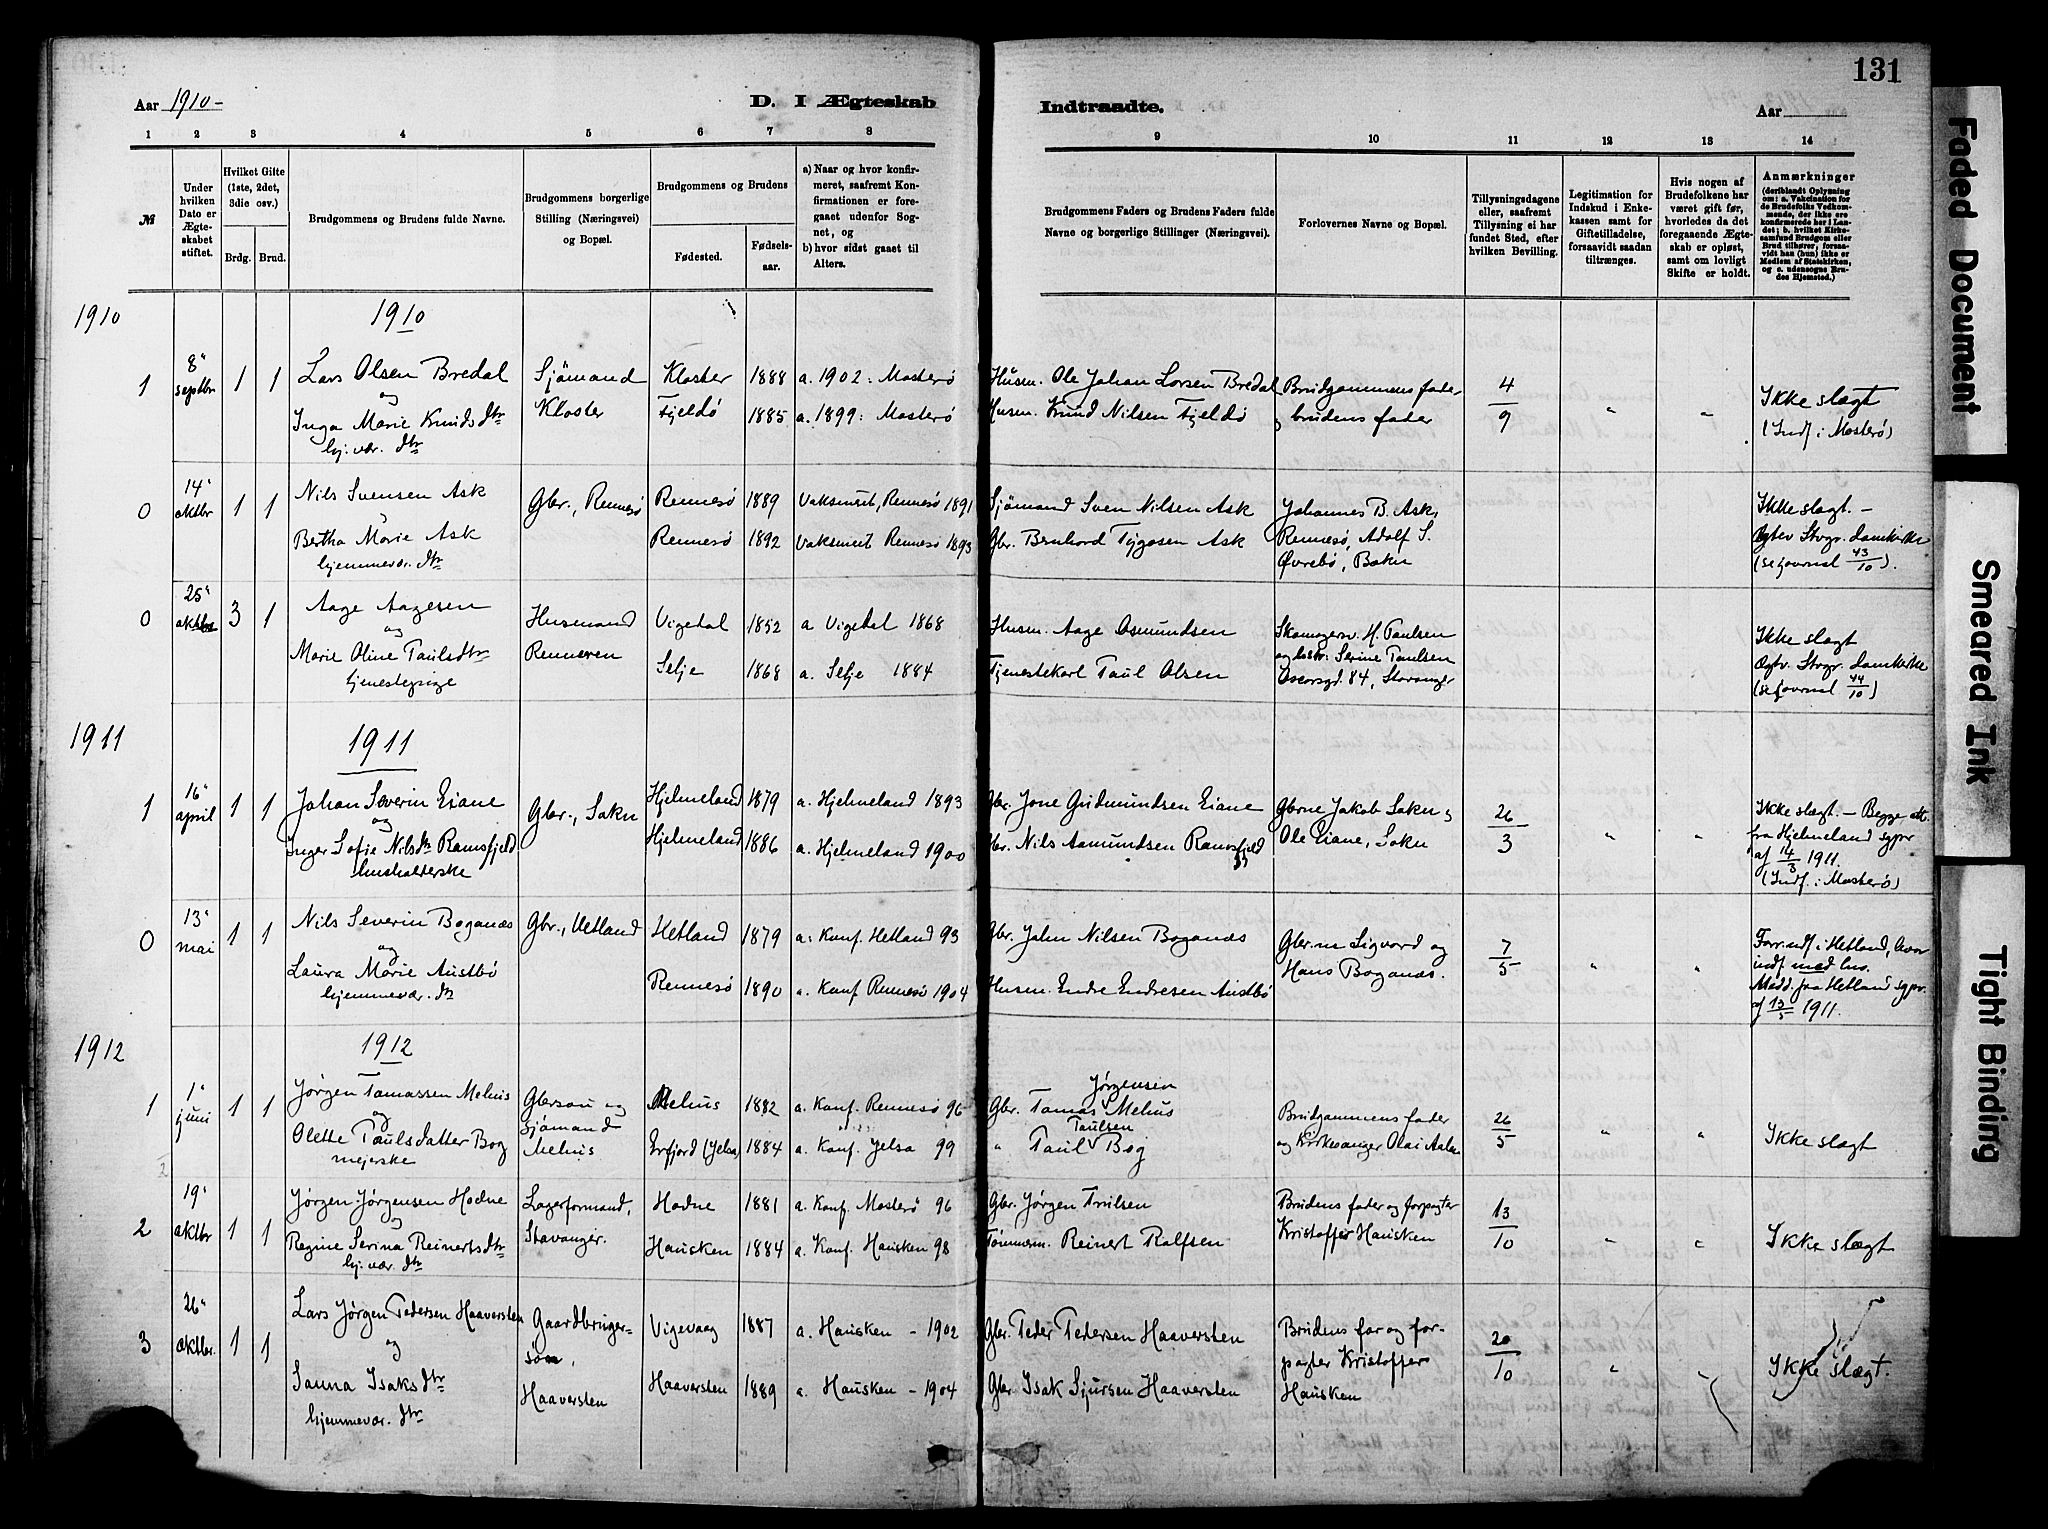 131
Aar 1910-
D. I Ægteskab
Indtraadte.
Aar
1 2 3 4 5 6 7 8 9 10 11 12 13 14
№
Under hvilken Dato er Ægteskabet stiftet.
Hvilket Gifte (1ste, 2det, 3die osv.)
Brdg. Brud.
Brudgommens og Brudens fulde Navne.
Brudgommens borgerlige Stilling (Næringsvei) og Bopæl.
Brudgommens og Brudens
Fødested.
Fødselsaar.
a) Naar og hvor konfirmeret, saafremt Konfirmationen er foregaaet udenfor Sognet, og
b) hvor sidst gaaet til Alters.
Brudgommens Faders og Brudens Faders fulde Navne og borgerlige Stillinger (Næringsvei).
Forlovernes Navne og Bopæl.
Tillysningsdagene eller, saafremt Tillysning ei har fundet Sted, efter hvilken Bevilling.
Legitimation for Indskud i Enkekassen samt for Giftetilladelse, forsaavidt saadan tiltrænges.
Hvis nogen af Brudefolkene har været gift før, hvorledes da det foregaaende Ægteskab er opløst, samt om lovligt Skifte er holdt.
Anmærkninger
(deriblandt Oplysning om: a. Vakcination for de Brudefolks Vedkommende, der ikke ere konfirmerede her i Landet; b. hvilket Kirkesamfund Brudgom eller Brud tilhører, forsaavidt han (hun) ikke er Medlem af Statskirken, og c. udensogns Brudes Hjemsted.)
1910
1910
1 8' septbr 1 1 Lars Olsen Bredal Sjømand Kloster 1888 a. 1902: Mosterø Husm. Ole Johan Larsen Bredal Brudgommens fader 4/9 " " Ikke slægt
og Kloster
Inga Marie Knudsdtr Fjeldø 1885 a. 1899: Mosterø Husm. Knud Nilsen Fjeldø og brudens fader (Indf. i Mosterø)
hj. vær. dtr
0 14' oktbr 1 1 Nils Svensen Ask Gbr., Rennesø Rennesø 1889 Vaksineret, Rennesø 1891 Sjømand Sven Nilsen Ask Johannes B. Ask, Ikke slægt. -
Bertha Marie Ask Rennesø 1892 Vaksineret Rennesø 1893 Gbr. Bernhard Tygesen Ask Rennesø, Adolf S. Øvrebø, Bokn Ægtev. Stvgr. domkirke
hjemmevær. dtr (se journal 43/10).
0 25' oktbr 3 1 Aage Aagesen Husmand Vigedal 1852 a Vigedal 1868 Husm. Aage Osmundsen Skomagersv. H. Paulsen Ikke slægt
og Renneren og Serine Paulsen Ægtv. Stvgr. domkirke
Marie Oline Paulsdtr Selje 1868 a. Selje 1884 Tjenestekarl Paul Olsen Oscarsgd. 84, Stavanger (se journal 44/10)
tjenestepige
1911
1911
1 16' april 1 1 Johan Severin Eiane Gbr., Sokn Hjelmeland 1879 a. Hjelmeland 1893 Gbr. Jone Gudmundsen Eiane Gbrne Jakob Sokn og 26/3 " " Ikke slægt. - Begge att.
og fra Hjelmeland sgpr
Inger Sofie Nilsdtr Ramsfjeld Hjelmeland 1886 a. Hjelmeland 1900 Gbr. Nils Aamundsen Ramsfjeld Ole Eiane, Sokn af 14/3 1911.
husholderske (Indf. i Mosterø)
0 13' mai 1 1 Nils Severin Boganæs Gbr., Hetland Hetland 1879 a: Konf. Hetland 93 Gbr. John Nilsen Boganæs Gbr.ne Sigvard og 7/5 " " Forr. indf. i Hetland, hvor
og indf. med no.
Laura Marie Austbø Rennesø 1890 a. Konf Rennesø 1904 Husm. Endre Endresen Austbø Hans Boganæs. Medd. fra Hetland sgpr.
hjemmevær. dtr af 13/5 1911.
1912
1912
1 1' juni 1 1 Jørgen Tomassen Melhus Gbrsøn og Melhus 1882 a. Konf. Rennesø 96 Gbr. Tomas Jørgensen Melhus Brudgommens fader 26/5 " " Ikke slægt
og sjømand
Olette Paulsdatter Bog Melhus Erfjord (Jelsa) 1884 a. Konf. Jelsa 99 " Paul Paulsen Bog og Kirkesanger Olai Aalen
mejerske
2 19' oktbr 1 1 Jørgen Jørgensen Hodne Lagerformand, Hodne 1881 a. Konf. Mosterø 96 Gbr. Jørgen Trulsen Brudens fader og forpagter 13/10 " " Ikke slægt
og Stavanger.
Regine Serina Reinertsdtr Hausken 1884 a. Konf. Hausken 98 Tømmerm. Reinert Rolfsen Kristoffer Hausken
hj. vær. dtr
3 26' oktbr. 1 1 Lars Jørgen Pedersen Haaversten Gaardbrugersøn, Vigevaag 1887 a. Hausken - 1902 Gbr. Peder Pedersen Haaversten Brudens far og forpagter Kristoffer 20/10 " " Ikke slægt.
og
Sanna Isaksdtr Haaversten Haaversten 1889 a. Hausken - 1904 Gbr. Isak Sjursen Haaversten Hausken
hjemmevær. dtr
Faded Document
Smeared Ink
Tight Binding